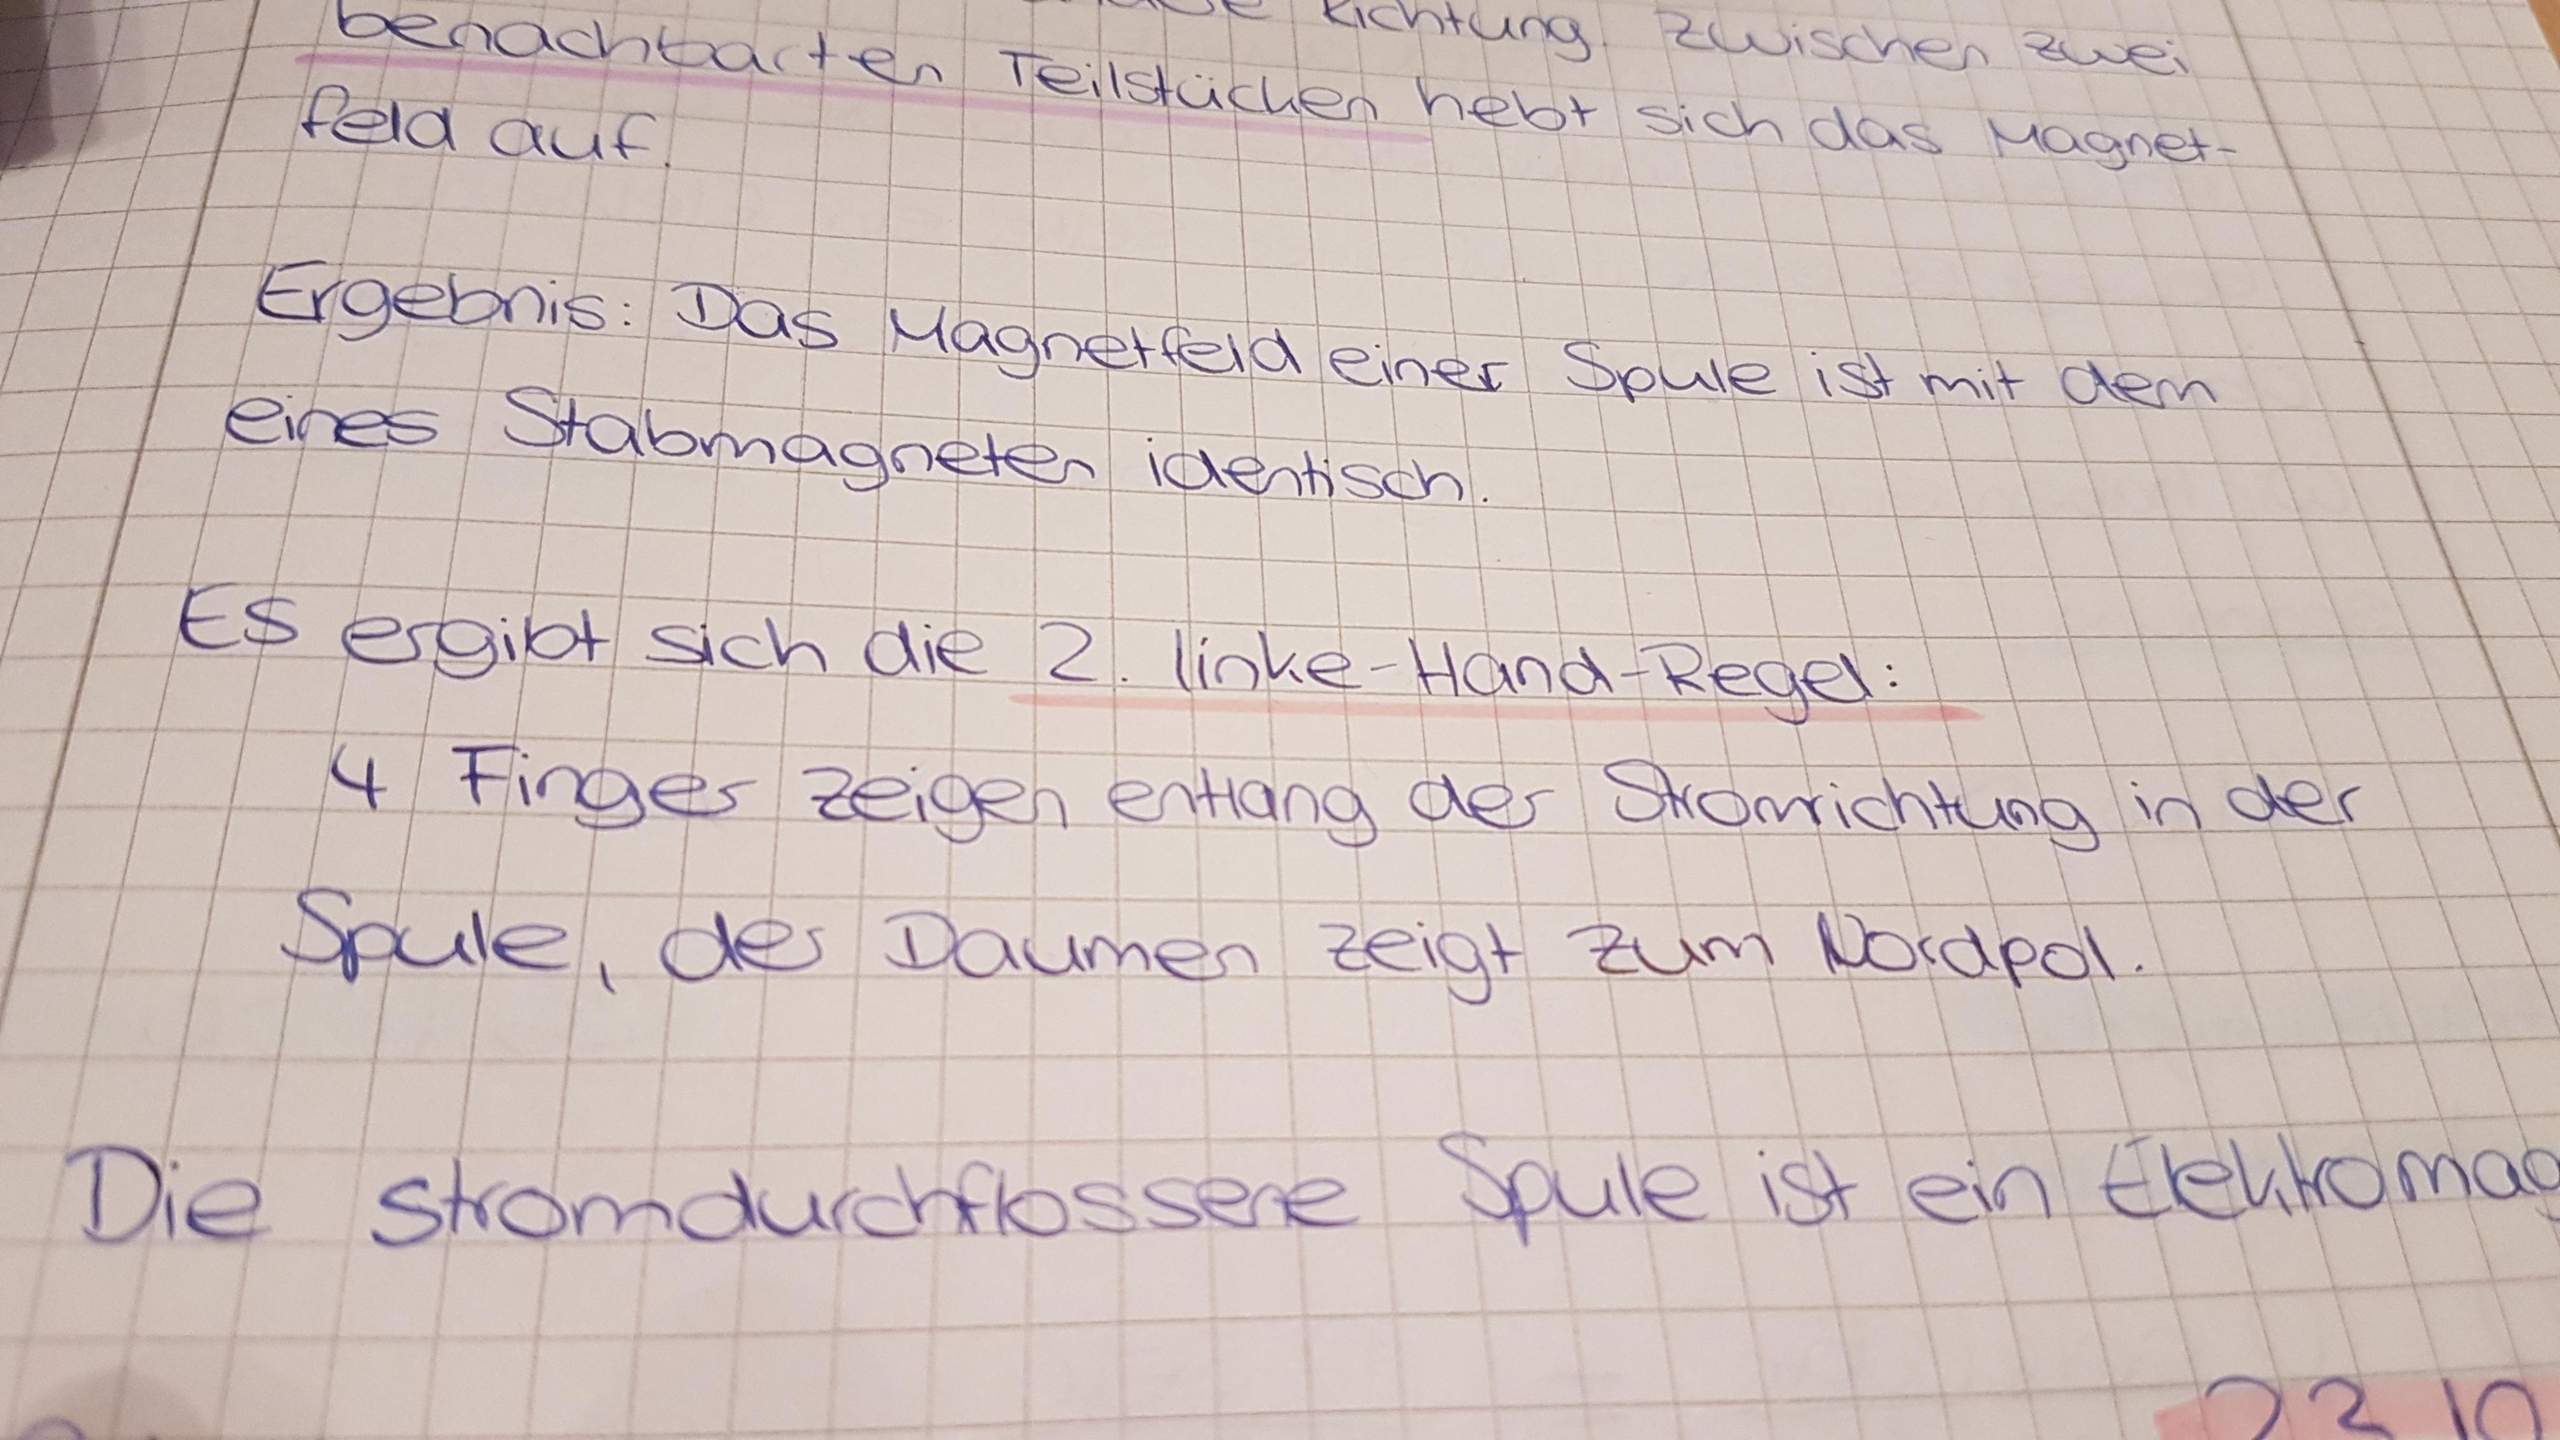 Richtung. Zwischen zwei
benachbarten Teilstücken hebt sich das Magnet-
feld auf.
Ergebnis: Das Magnetfeld einer Spule ist mit dem
eines Stabmagneten identisch.
Es ergibt sich die 2. linke-Hand-Regel:
4 Finger zeigen entlang der Stromrichtung in der
Spule, der Daumen zeigt zum Nordpol.
Die stromdurchflossene Spule ist ein Elektromag
22.10